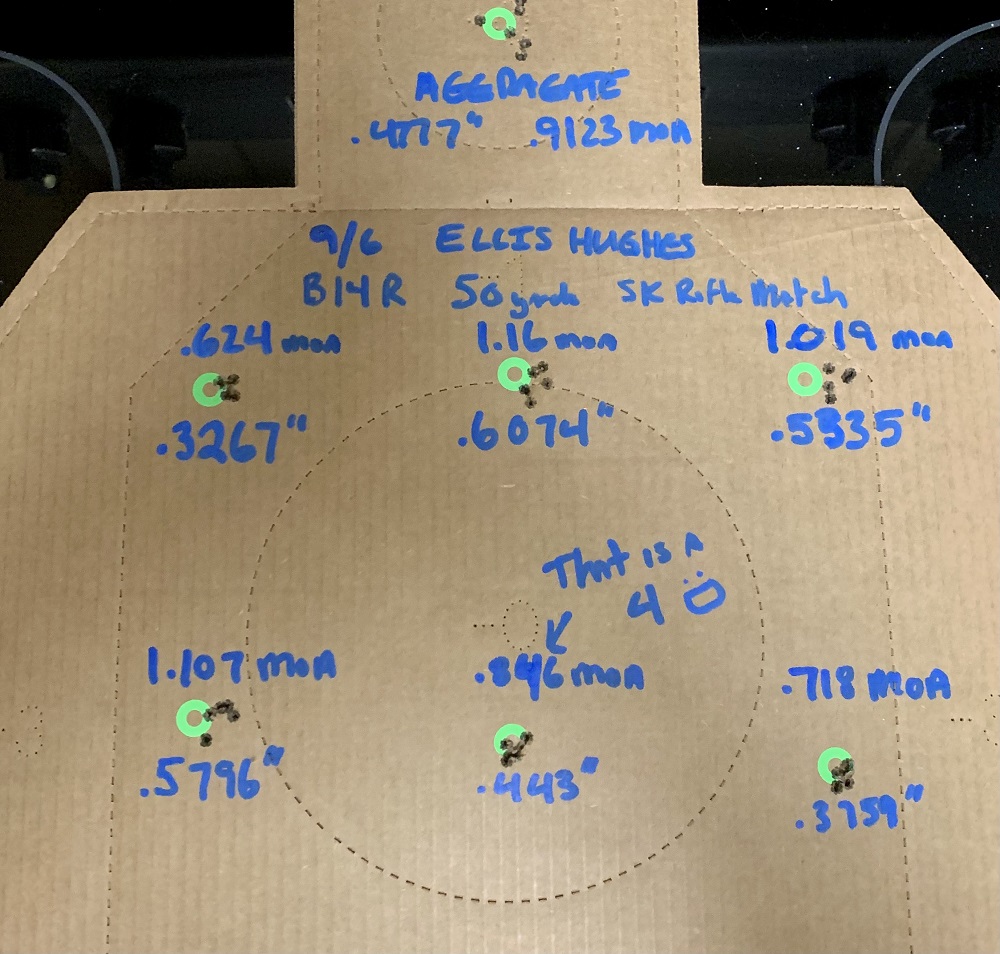 AGGRAGATE
.4777" .9123 MOA
9/6 ELLIS HUGHES
B14R 50 yards SK Rifle Match
.624 MOA 1.16 MOA 1.019 MOA
.3267" .6074" .5335"
That is A
4
1.107 MOA .846 MOA .718 MOA
.5796" .443" .3759"